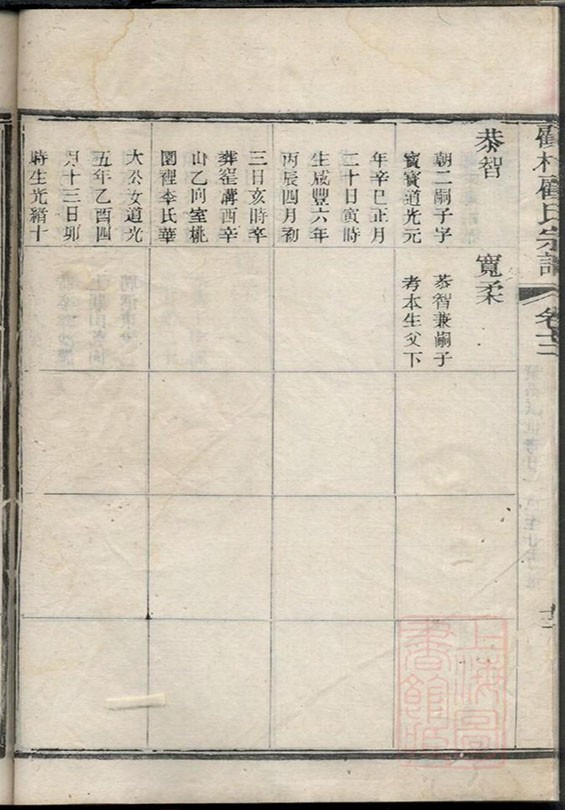 顧氏宗譜
卷十三
恭智
朝二嗣子字
寳寳道光元
年辛巳正月
二十日寅時
生咸豐六年
丙辰四月初
三日亥時卒
葬窑溝酉辛
山乙向室桃
園裡李氏華
大公女道光
五年乙酉四
月十三日卯
時生光緒十
寬柔
恭智兼嗣子
考本生父下
上海圖
書館